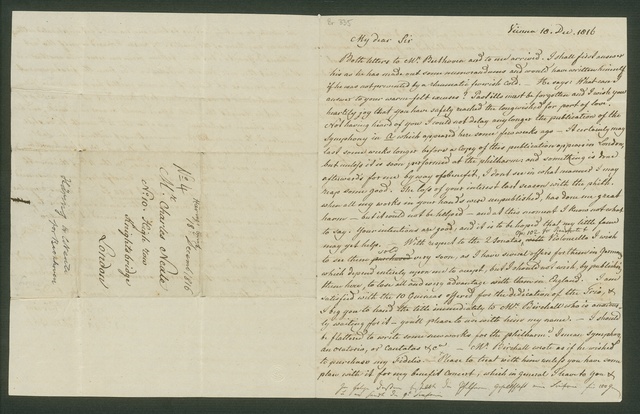 Vienna 18. Dec. 1816
My dear Sir
Both letters to Mr. Beethoven and to me arrived. I shall first answer
his as he has made out some memorandums and would have written himself
if he was not prevented by a rheumatic feverish cold. He says: What can I
answer to your warm felt excuses? Past ills must be forgotten and I wish you
heartily joy that you have safely reached the long wished for port of love.
Not having heard of you I could not delay any longer the publication of the
Symphony in A which appeared here some few weeks ago. It certainly may
last some weeks longer before a copy of this publication appears in London,
but unless it is soon performed at the philharmonic and something is done
afterwards for me by way of benefit, I don't see in what manner I may
reap some good. The loss of your interest last season with the philh.
when all my works in your hands were unpublished, has done me great
harm but it could not be helped and at this moment I know not what
to say. Your intentions are good, and it is to be hoped that my little fame
may yet help. With respect to the 2 Sonatas, with Violoncello I wish
to see them sold very soon, as I have several offers for them in Germany
which depend entirely upon me to accept, but I should not wish, by publishing
them here, to lose all and every advantage with them in England. I am
satisfied with the 10 Guineas offered for the dedication of the Trio, &
I beg you to hand the title immediately to Mr. Birchall who is anxiously
waiting for it you'll please to use with him my name. I should
be flattered to write some new works for the philharmc. I mean Symphonies,
an oratorio, or Cantatas &c. Mr. Birchall wrote as if he wished
to purchase my Fidelio. Please to treat with him unless you have some
plan with it for my benefit Concert, which in general I leave to you &
No. 4
Mr. Charles Neate
New High row
Knightsbridge
London
18 Decemb 1816